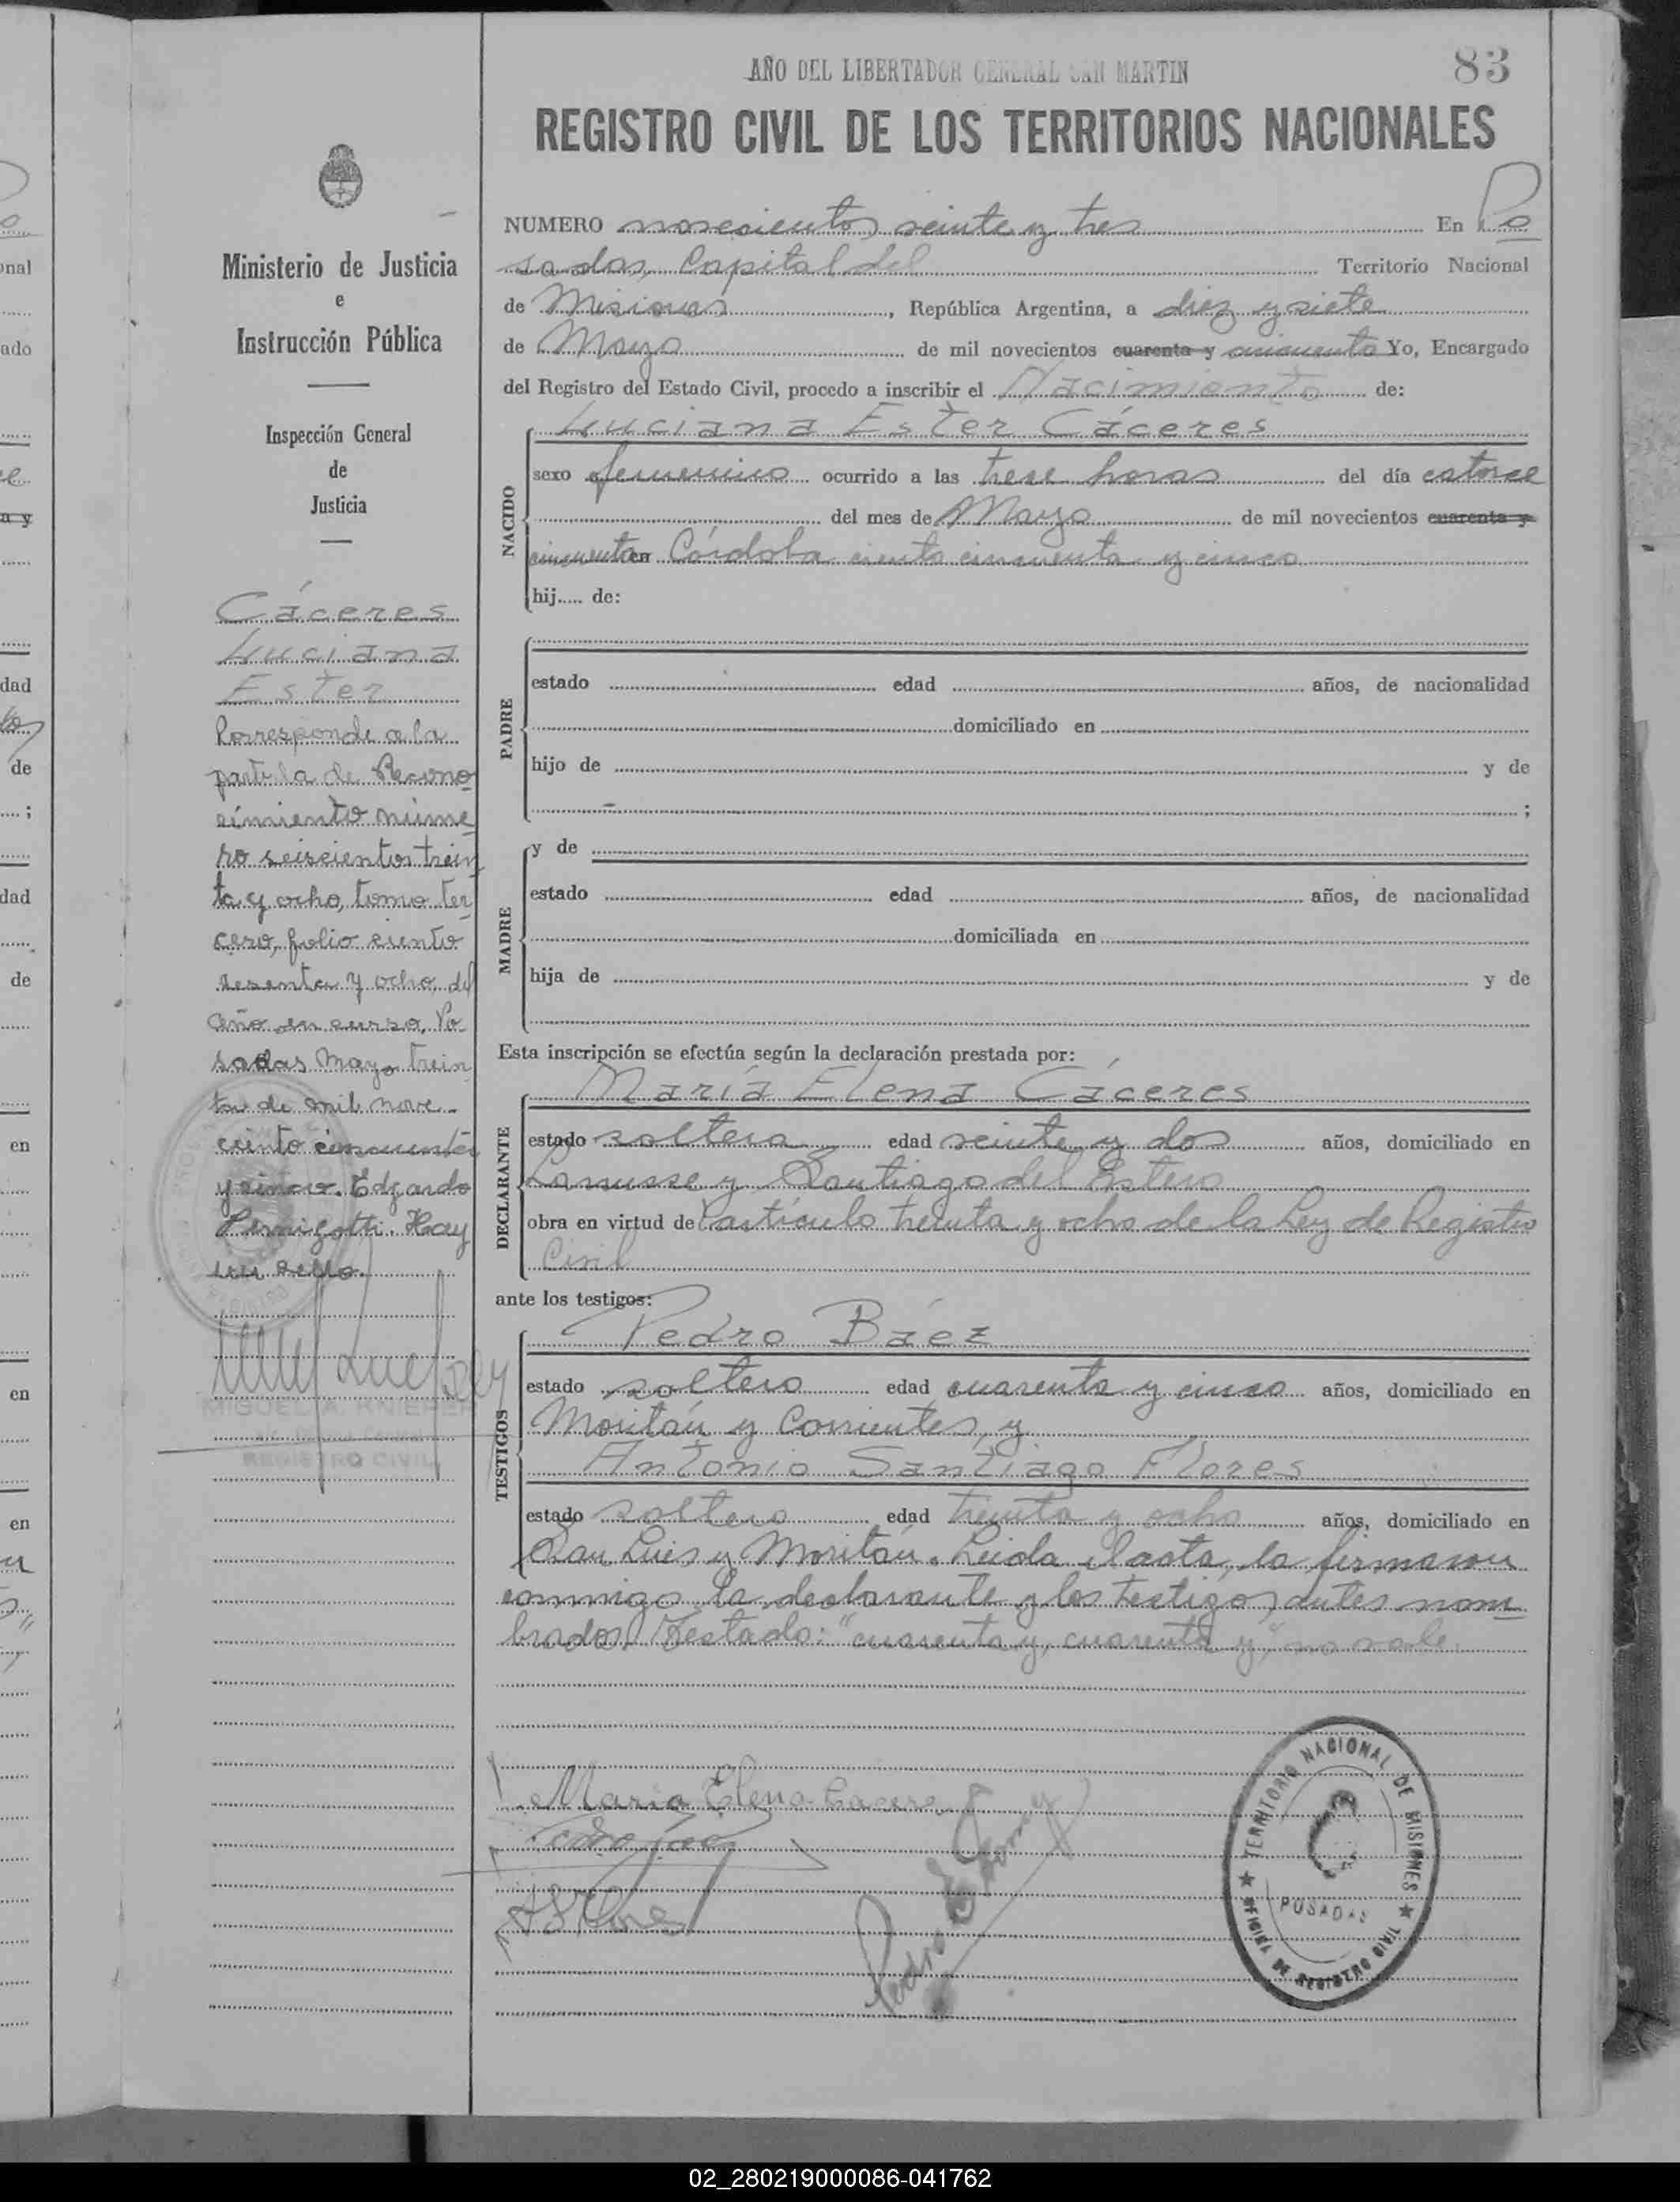 AÑO DEL LIBERTADOR GENERAL SAN MARTIN
83
REGISTRO CIVIL DE LOS TERRITORIOS NACIONALES
Ministerio de Justicia
e
Instrucción Pública
Inspección General
de
Justicia
Cáceres
Luciana
Ester
Corresponde a la
partida de Recono
cimiento núme
ro seiscientos trein
ta y ocho, tomo ter
cero, folio ciento
sesenta y ocho, del
año en curso, Po
sadas Mayo trein
ta de mil nove
ciento cincuenta
y cinco. Edgardo
Hay
un sello.
MIGUEL A. KNIEPER
REGISTRO CIVIL
NUMERO novecientos veinte y tres En Po
sadas, Capital del Territorio Nacional
de Misiones, República Argentina, a diez y siete
de Mayo de mil novecientos cuarenta y cincuenta Yo, Encargado
del Registro del Estado Civil, procedo a inscribir el Nacimiento de:
NACIDO
Luciana Ester Cáceres
sexo femenino ocurrido a las trece horas del día catorce
del mes de Mayo de mil novecientos cuarenta y
cincuenta en Córdoba ciento cincuenta y cinco
hij..... de:
PADRE
estado edad años, de nacionalidad
domiciliado en
hijo de y de
;
MADRE
y de
estado edad años, de nacionalidad
domiciliada en
hija de y de
Esta inscripción se efectúa según la declaración prestada por:
DECLARANTE
María Elena Cáceres
estado soltera edad veinte y dos años, domiciliado en
Lanusse y Santiago del Estero
obra en virtud del artículo treinta y ocho de la Ley de Registro
Civil
ante los testigos:
TESTIGOS
Pedro Báez
estado soltero edad cuarenta y cinco años, domiciliado en
Moritán y Corrientes, y
Antonio Santiago Flores
estado soltero edad treinta y ocho años, domiciliado en
San Luis y Moritán. Leída el acta, la firmaron
conmigo la declarante y los testigos antes nom
brados. Testado: "cuarenta y, cuarenta y," no vale.
Maria Elena Caceres
TERRITORIO NACIONAL DE MISIONES
POSADAS
OFICINA DE REGISTRO CIVIL
02_280219000086-041762